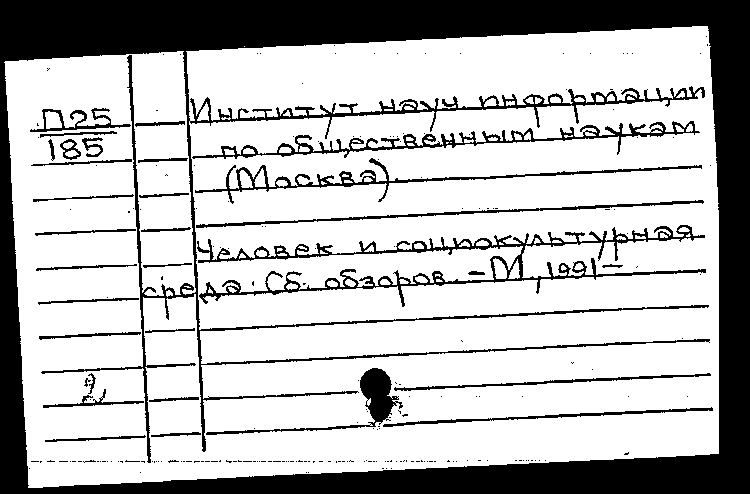 П25
185
Институт науч. информации
по общественным наукам
(Москва).
Человек и социокультурная
среда: Сб. обзоров. - М., 1991-
2